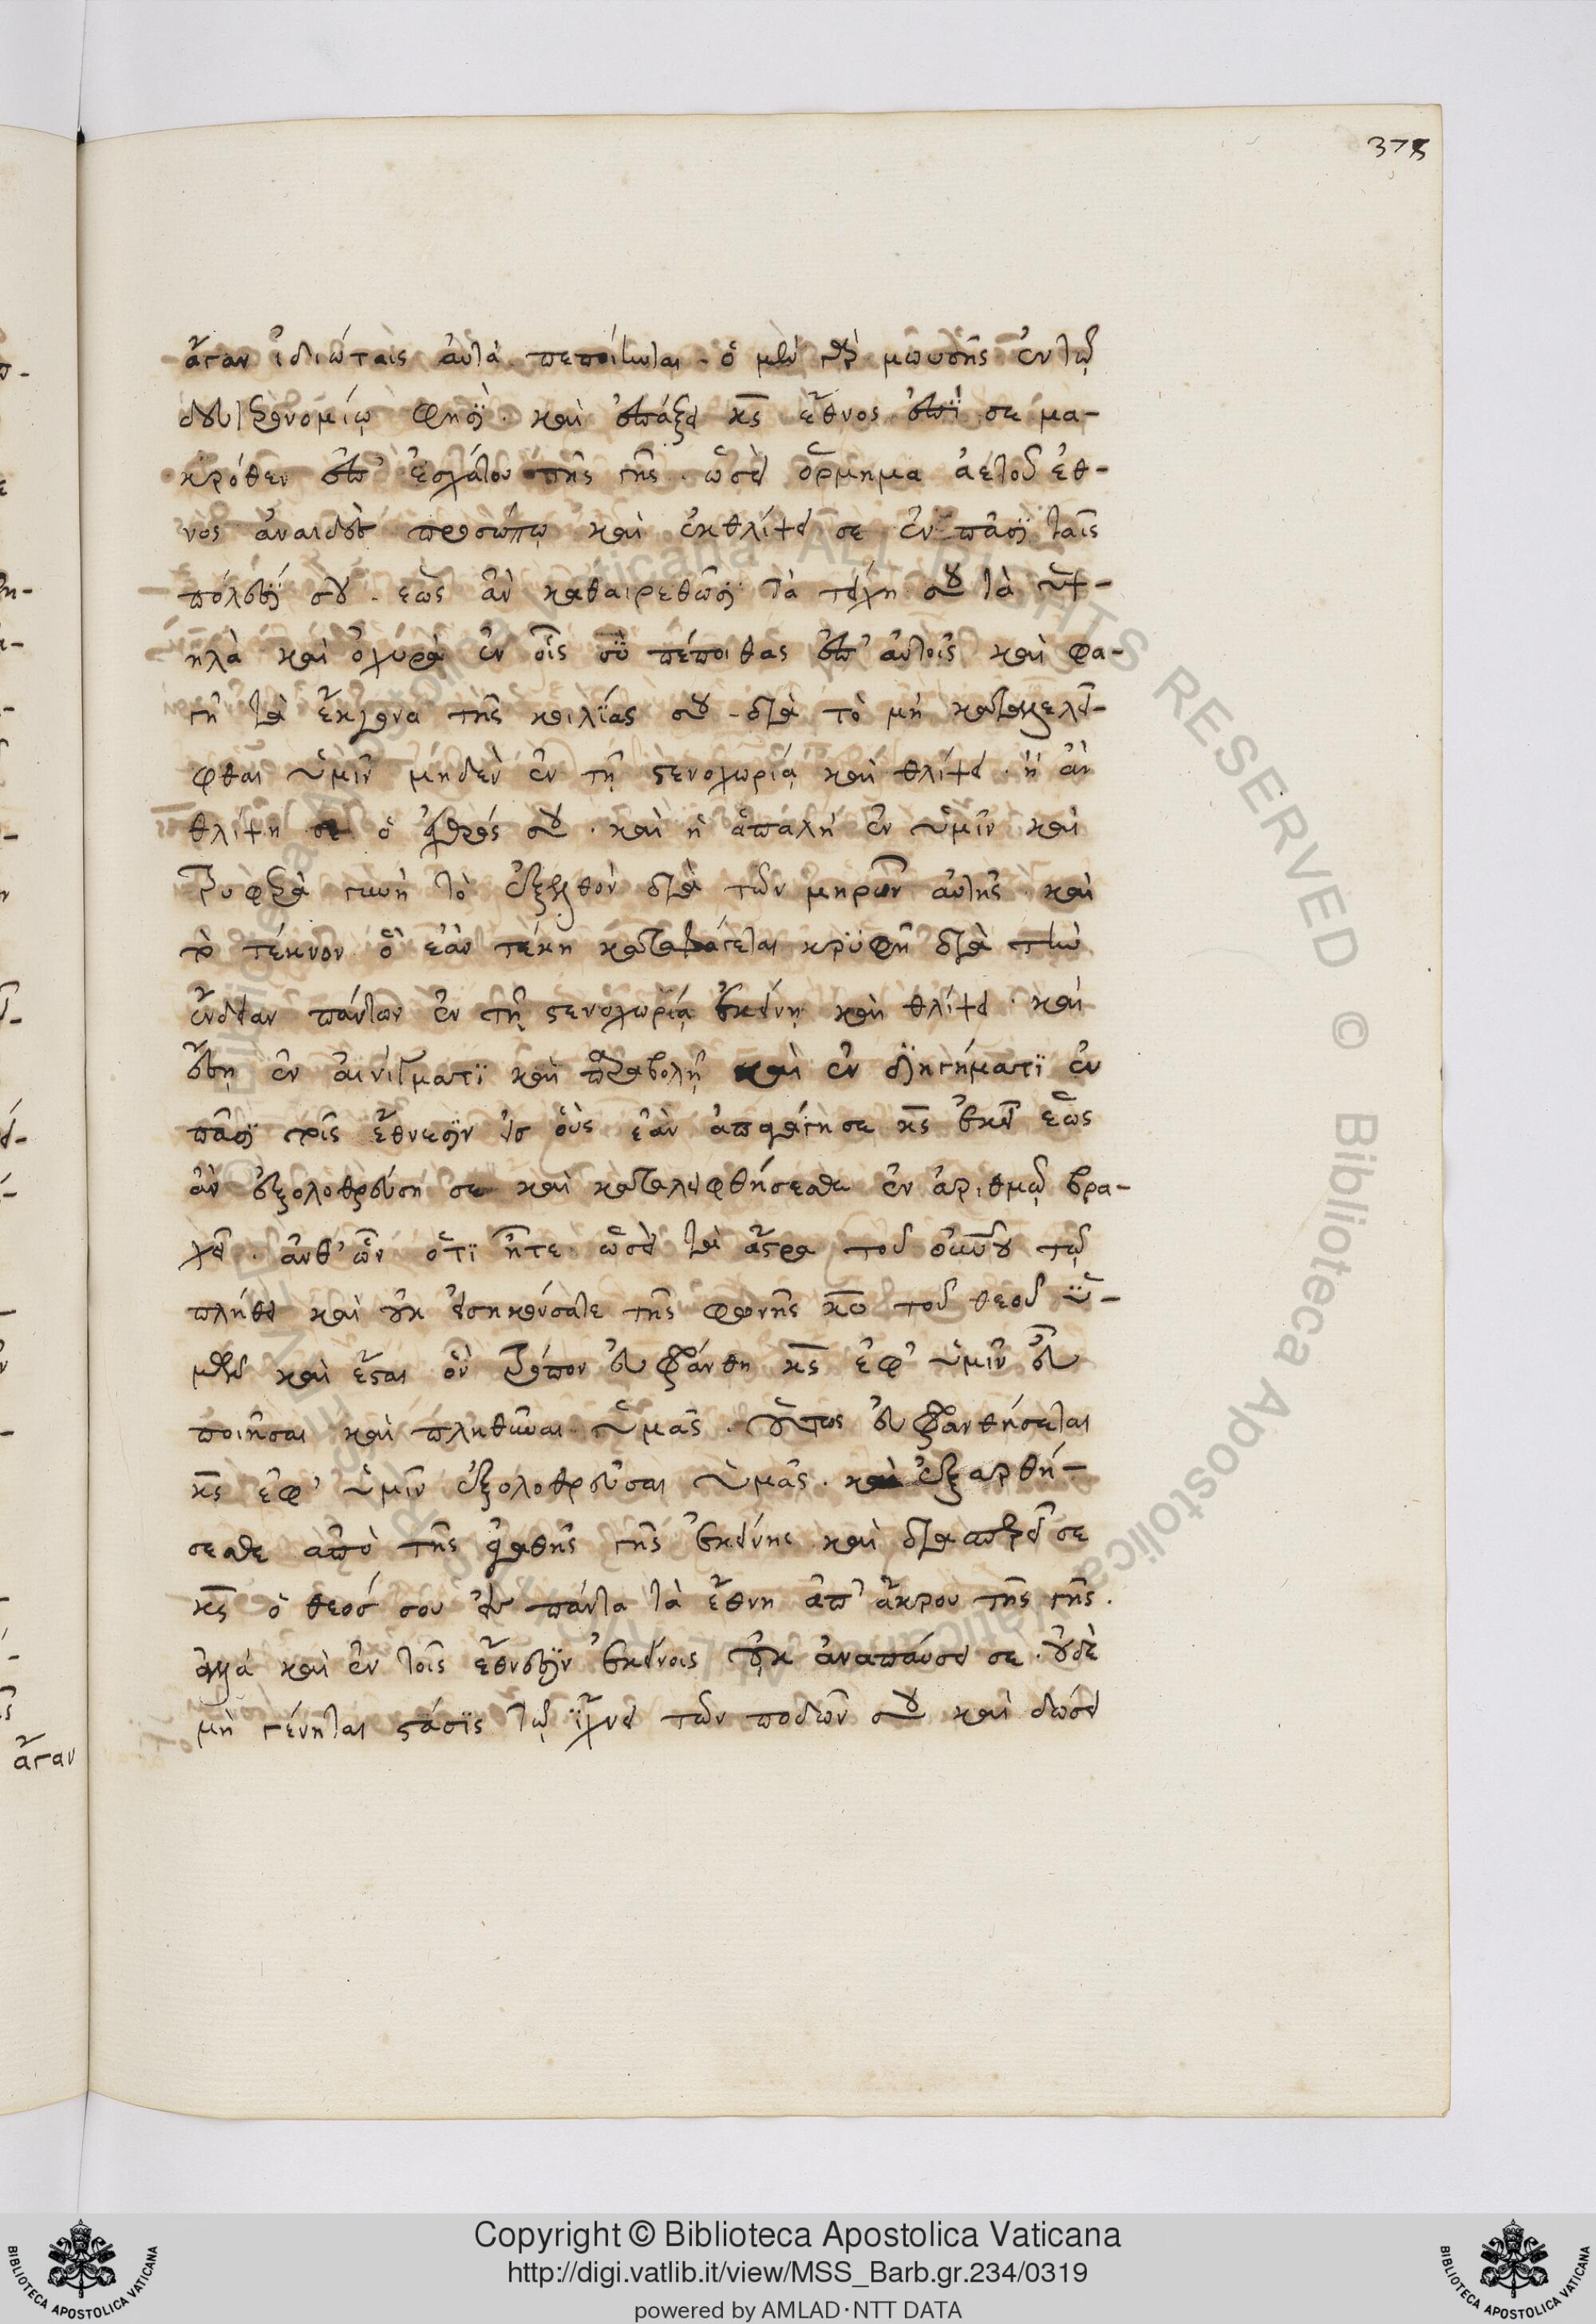 375
ἄγαν ἰδιώταις αὐτὰ πεποίηνται. ὁ μὲν γὰρ μωυσῆς ἐν τῷ
δευτερονομίῳ φησὶ. καὶ ἐπάξει κς ἔθνος ἐπί σε μα-
κρόθεν ἐπ' ἐσχάτου τῆς γῆς. ὡσεὶ ὅρμημα ἀετοῦ ἔθ-
νος ἀναιδὲς προσώπῳ καὶ ἐκθλίψει σε ἐν πάσαϊς ταῖς
πόλεσί σου. ἕως ἂν καθαιρεθῶσι τὰ τείχη σου τὰ ὑψ-
ηλὰ καὶ ὀχυρὰ ἐν οἷς σὺ πέποιθας ἐπ' αὐτοῖς καὶ φα-
γῆ τὰ ἔκγονα τῆς κοιλίας σου. διὰ τὸ μὴ καταλελεῖ-
φθαι ὑμῖν μηδὲν ἐν τῇ στενοχωρίᾳ καὶ θλίψει. ᾗ ἂν
θλίψῃ σε ὁ ἐχθρός σου. καὶ ἡ ἁπαλὴ ἐν ὑμῖν καὶ
τρυφερὰ γυνὴ τὸ ἐξελθὸν διὰ τῶν μηρῶν αὐτῆς καὶ
τὸ τέκνον ὃ ἐὰν τέκη καταφάγεται κρυφῇ διὰ τὴν
ἔνδειαν πάντων ἐν τῇ στενοχωρίᾳ ἐκείνῃ καὶ θλίψει. καὶ
ἔσῃ ἐν αἰνίγματι καὶ παραβολῇ καὶ ἐν διηγήματι ἐν
πᾶσι τοῖς ἔθνεσιν εἰσ οὓς ἐὰν ἀπαγάγῃ σε κς ἐκεῖ ἕως
ἂν ἐξολοθρεύσῃ σε καὶ καταλειφθήσεσθε ἐν ἀριθμῷ βρα-
χεῖ. ἀνθ' ὧν ὅτι ἦτε ὡσεὶ τὰ ἄστρα τοῦ οὐνοῦ τῷ
πλήθει καὶ οὐκ εἰσηκούσατε τῆς φωνῆς κυ τοῦ θεοῦ ὑ-
μῶν καὶ ἔσται ὃν τρόπον εὐφράνθη κς ἐφ' ὑμῖν εὖ
ποιῆσαι καὶ πληθῦναι ὑμᾶς. οὕτως εὐφρανθήσεται
κς ἐφ' ὑμῖν ἐξολοθρεῦσαι ὑμᾶς. καὶ ἐξαρθή-
σεσθε ἀπὸ τῆς ἀγαθῆς γῆς ἐκείνης καὶ διασπερεῖ σε
κς ὁ θεός σου εἰς πάντα τὰ ἔθνη ἀπ' ἄκρου τῆς γῆς.
ἀλλὰ καὶ ἐν τοῖς ἔθνεσιν ἐκείνοις οὐκ ἀναπαύσει σε. οὐδὲ
μὴ γένηται στάσις τῷ ἴχνει τῶν ποδῶν σου καὶ δώσει
ἄγαν
Copyright © Biblioteca Apostolica Vaticana
http://digi.vatlib.it/view/MSS_Barb.gr.234/0319
powered by AMLAD·NTT DATA